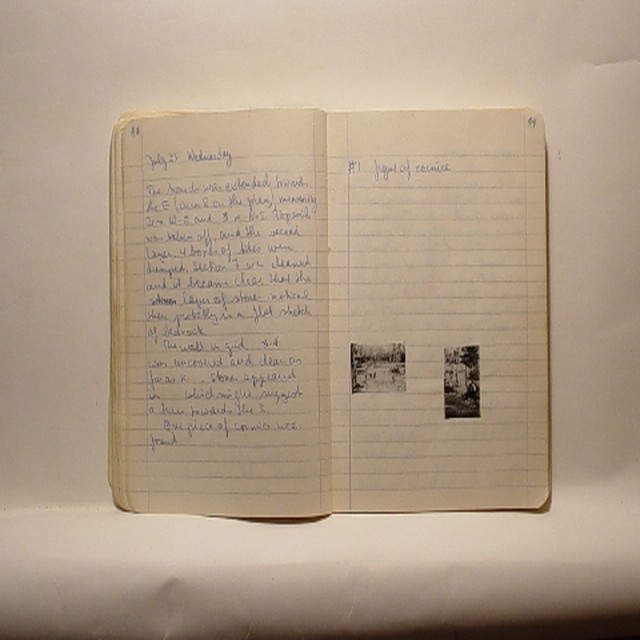 July 23 Wednesday
The trench was extended towards
the E (area 8 on the plan), measuring
W-E and 3 m N-S. Topsoil
was taken off, and the second
layer. 4 boxes of tiles were
dumped. Section was cleaned
and it became clear that the
layer of stones noticed
there probably is a flat stretch
of bedrock.
The wall in grid
was uncovered and clear as
far as K. Stones appeared
in which might suggest
a turn towards the S.
One piece of cornice was
found
44
#1 fragm. of cornice